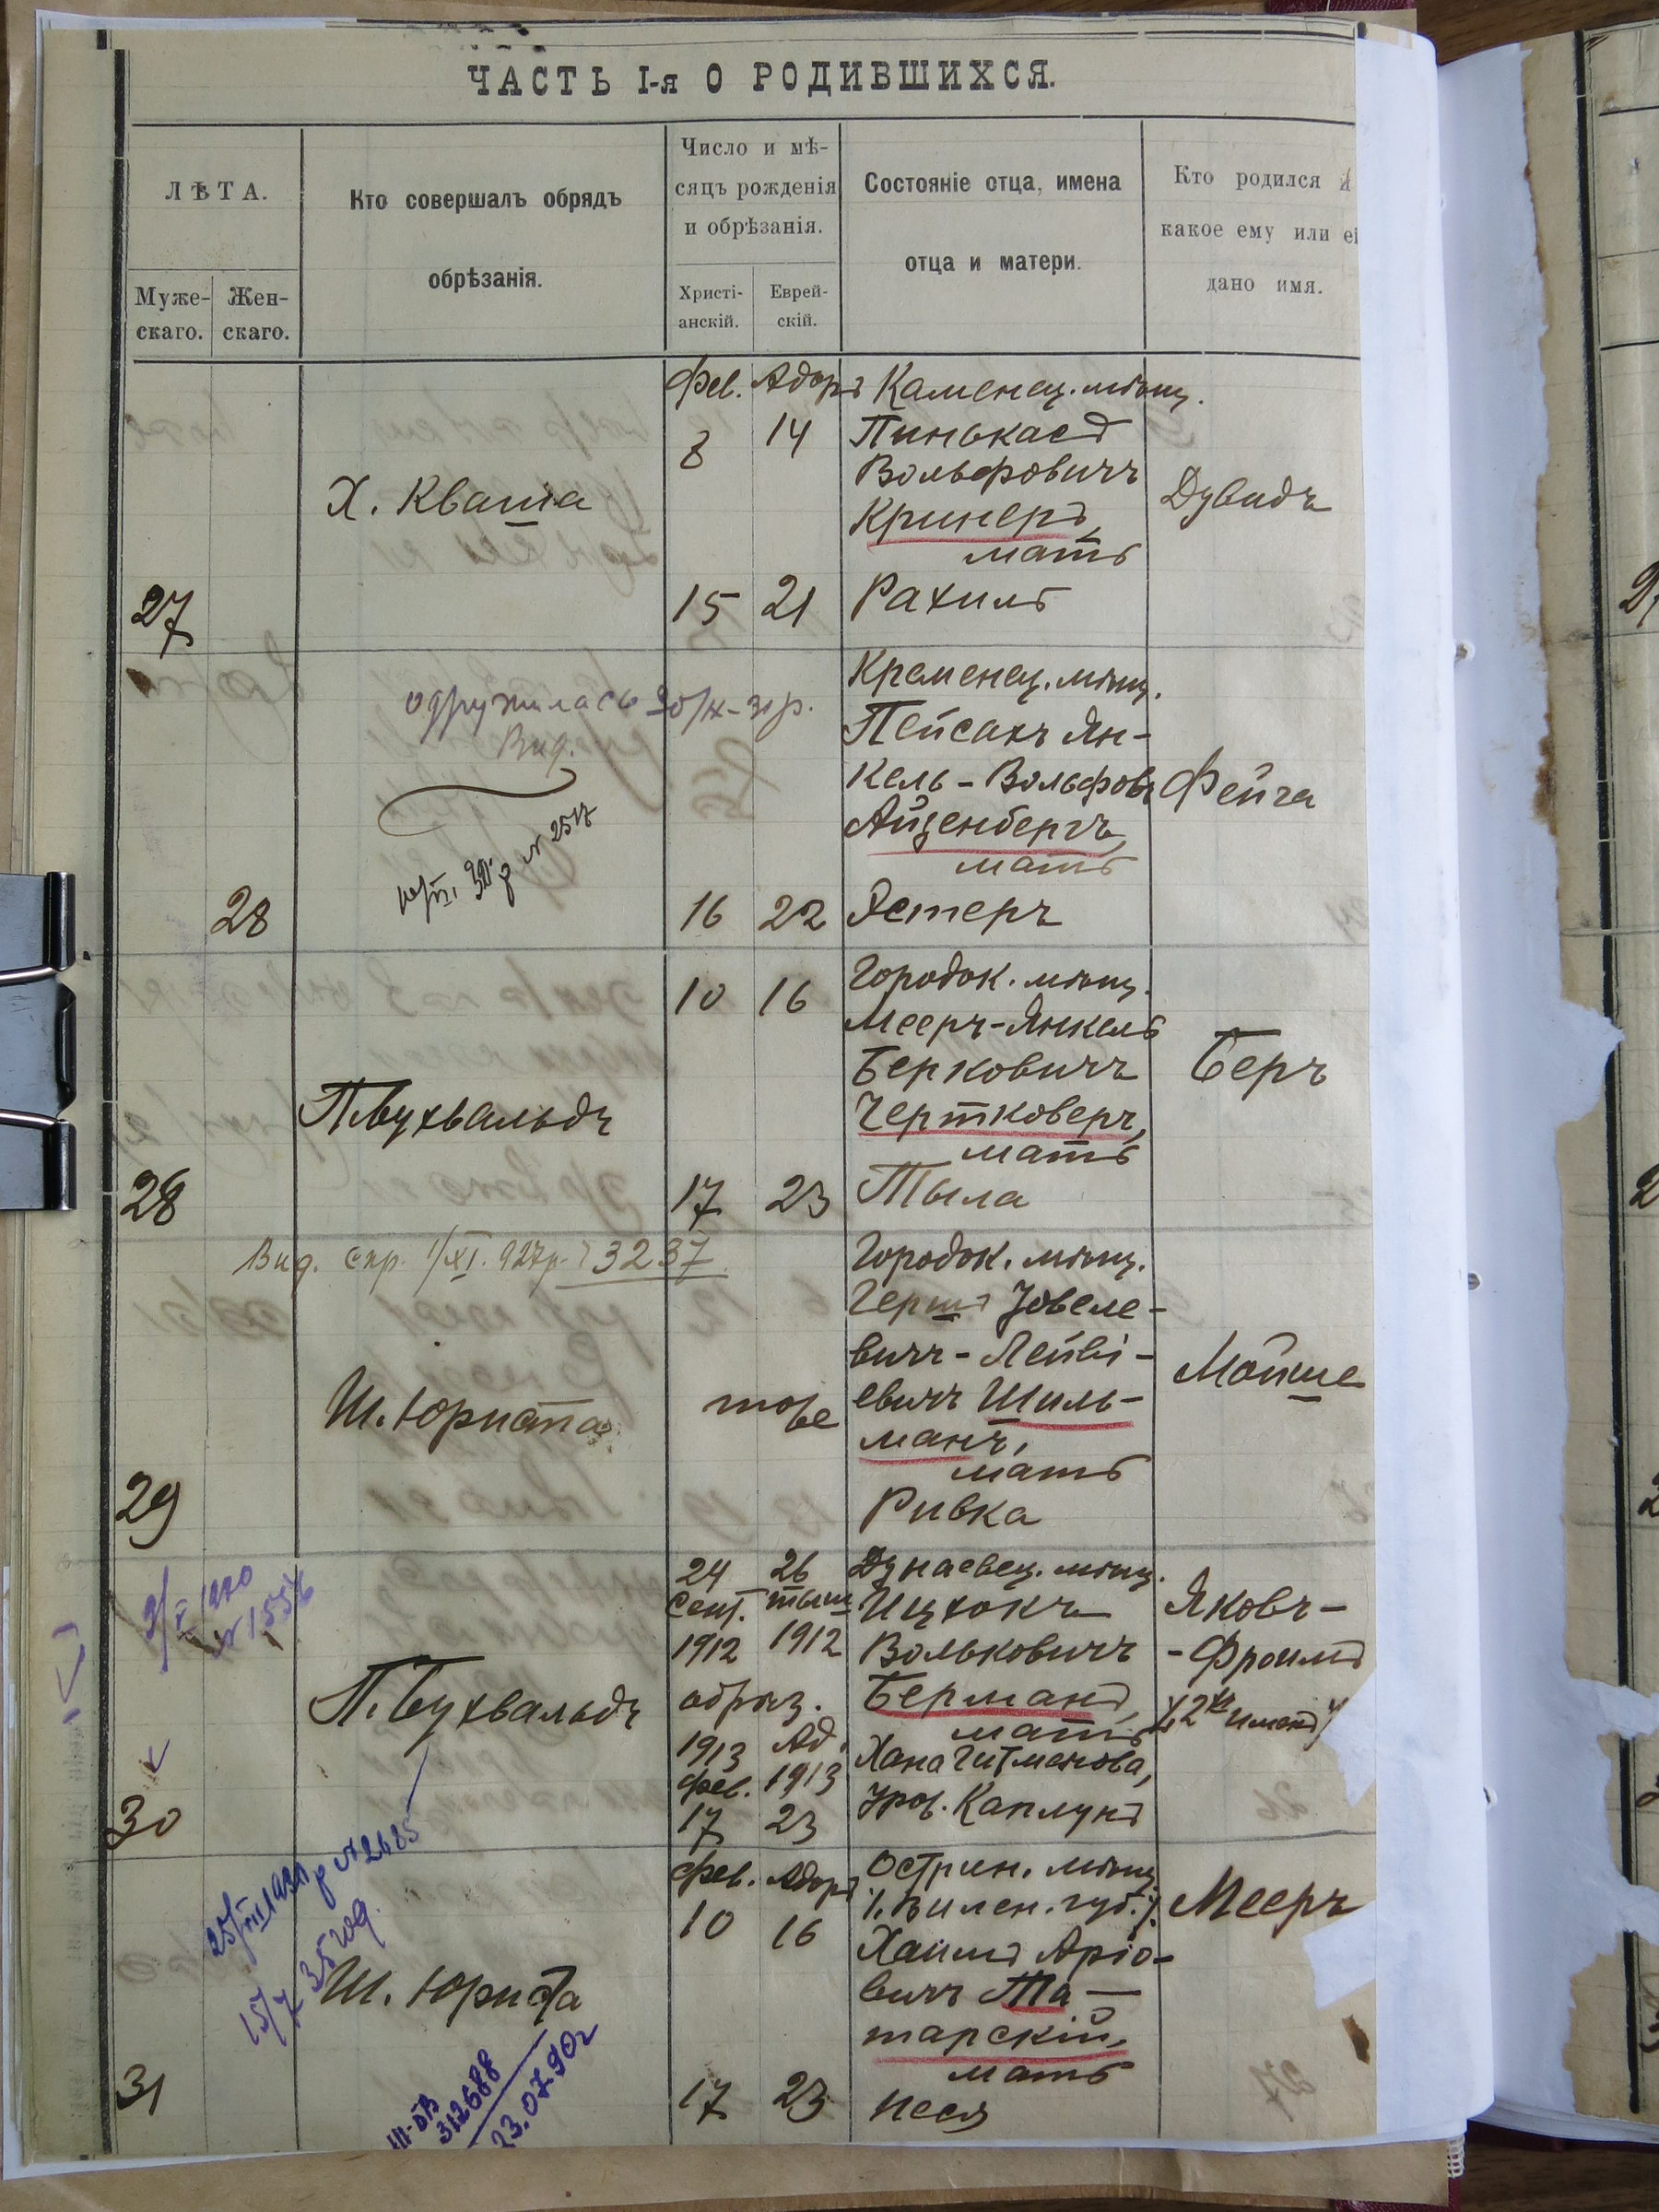 ЧАСТЬ I-я О РОДИВШИХСЯ.
ЛѢТА.
Муже-
скаго.
Жен-
скаго.
Кто совершалъ обрядъ
обрѣзанія.
Число и мѣ-
сяцъ рожденія
и обрѣзанія.
Христі-
анскій.
Еврей-
скій.
Состояніе отца, имена
отца и матери.
Кто родился и
какое ему или ей
дано имя.
27
Х. Кваша
Фев. Адаръ
8 14
15 21
Каменец. мѣщ.
Пинькасъ
Вольфовичъ
Кринеръ,
мать
Рахиль
Дувидъ
28
одружилась 30/IX-31р.
Вид.
№ 2517
16 22
Кременец. мѣщ.
Пейсахъ Ян-
кель-Вольфов
Айзенбергъ,
мать
Эстеръ
Фейга
28
П. Бухвальдъ
10 16
17 23
Городок. мѣщ.
Мееръ-Янкель
Берковичъ
Чертковеръ,
мать
Тыла
Беръ
29
Вид. скр. 1/XI. 927р. 3237
Ш. Юриста
тоже
Городок. мѣщ.
Гершъ Іовеле-
вичъ-Лейві-
евичъ Шиль-
манъ,
мать
Ривка
Мойше
30
П. Бухвальдъ
24 26
Сент. тыш
1912 1912
обрѣз.
1913 Ад.
фев. 1913
17 23
Дунаевец. мѣщ.
Ицхокъ
Вольковичъ
Берманъ,
мать
Хана Гитманова,
Урож. Каплунъ
Яковъ-
-Фроимъ
31
№ 2685
Ш. Юриста
312688
23.07.90г
Фев. Адаръ
10 16
17 23
Острин. мѣщ.
Вилен. губ.
Хаимъ Аріо-
вичъ Та-
тарскій,
мать
Неся
Мееръ